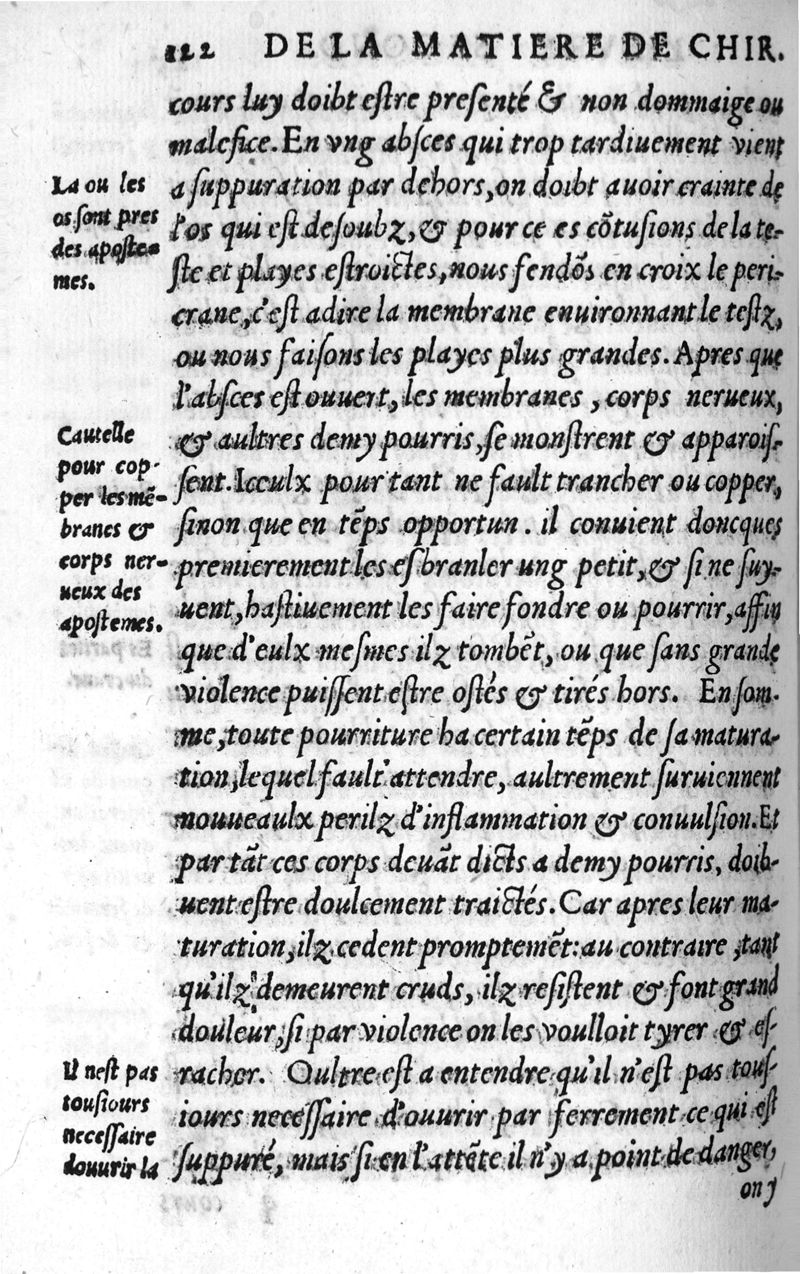 122 DE LA MATIERE DE CHIR.
cours luy doibt eſtre preſenté & non dommaige ou
malefice. En vng abſces qui trop tardiuement vient
a ſuppuration par dehors, on doibt auoir crainte de
l'os qui eſt deſoubz, & pour ce es cōtuſions de la te-
ſte et playes eſtroictes, nous fendōs en croix le peri-
crane, c'eſt adire la membrane enuironnant le teſtz,
ou nous faiſons les playes plus grandes. Apres que
l'abſces eſt ouuert, les membranes, corps nerueux,
& aultres demy pourris, ſe monſtrent & apparoiſ-
ſent. Iceulx pourtant ne fault trancher ou copper,
ſinon que en tēps opportun. il conuient doncques
premierement les eſbranler ung petit, & ſi ne ſuy-
uent, haſtiuement les faire fondre ou pourrir, affin
que d'eulx meſmes ilz tombēt, ou que ſans grande
violence puiſſent eſtre oſtés & tirés hors. En ſom-
me, toute pourriture ha certain tēps de ſa matura-
tion, lequel fault attendre, aultrement ſuruiennent
nouueaulx perilz d'inflammation & conuulſion. Et
par tāt ces corps deuāt dicts a demy pourris, doib-
uent eſtre doulcement traictés. Car apres leur ma-
turation, ilz cedent promptemēt: au contraire, tant
qu'ilz demeurent cruds, ilz reſiſtent & font grand
douleur, ſi par violence on les voulloit tyrer & eſ-
racher. Oultre eſt a entendre qu'il n'eſt pas touſ-
iours neceſſaire d'ouurir par ferrement ce qui eſt
ſuppuré, mais ſi en l'attēte il n'y a point de danger,
on y
La ou les
os ſont pres
des apoſte-
mes.
Cautelle
pour cop-
per les mē-
branes &
corps ner-
ueux des
apoſtemes.
Il neſt pas
touſiours
neceſſaire
douurir la